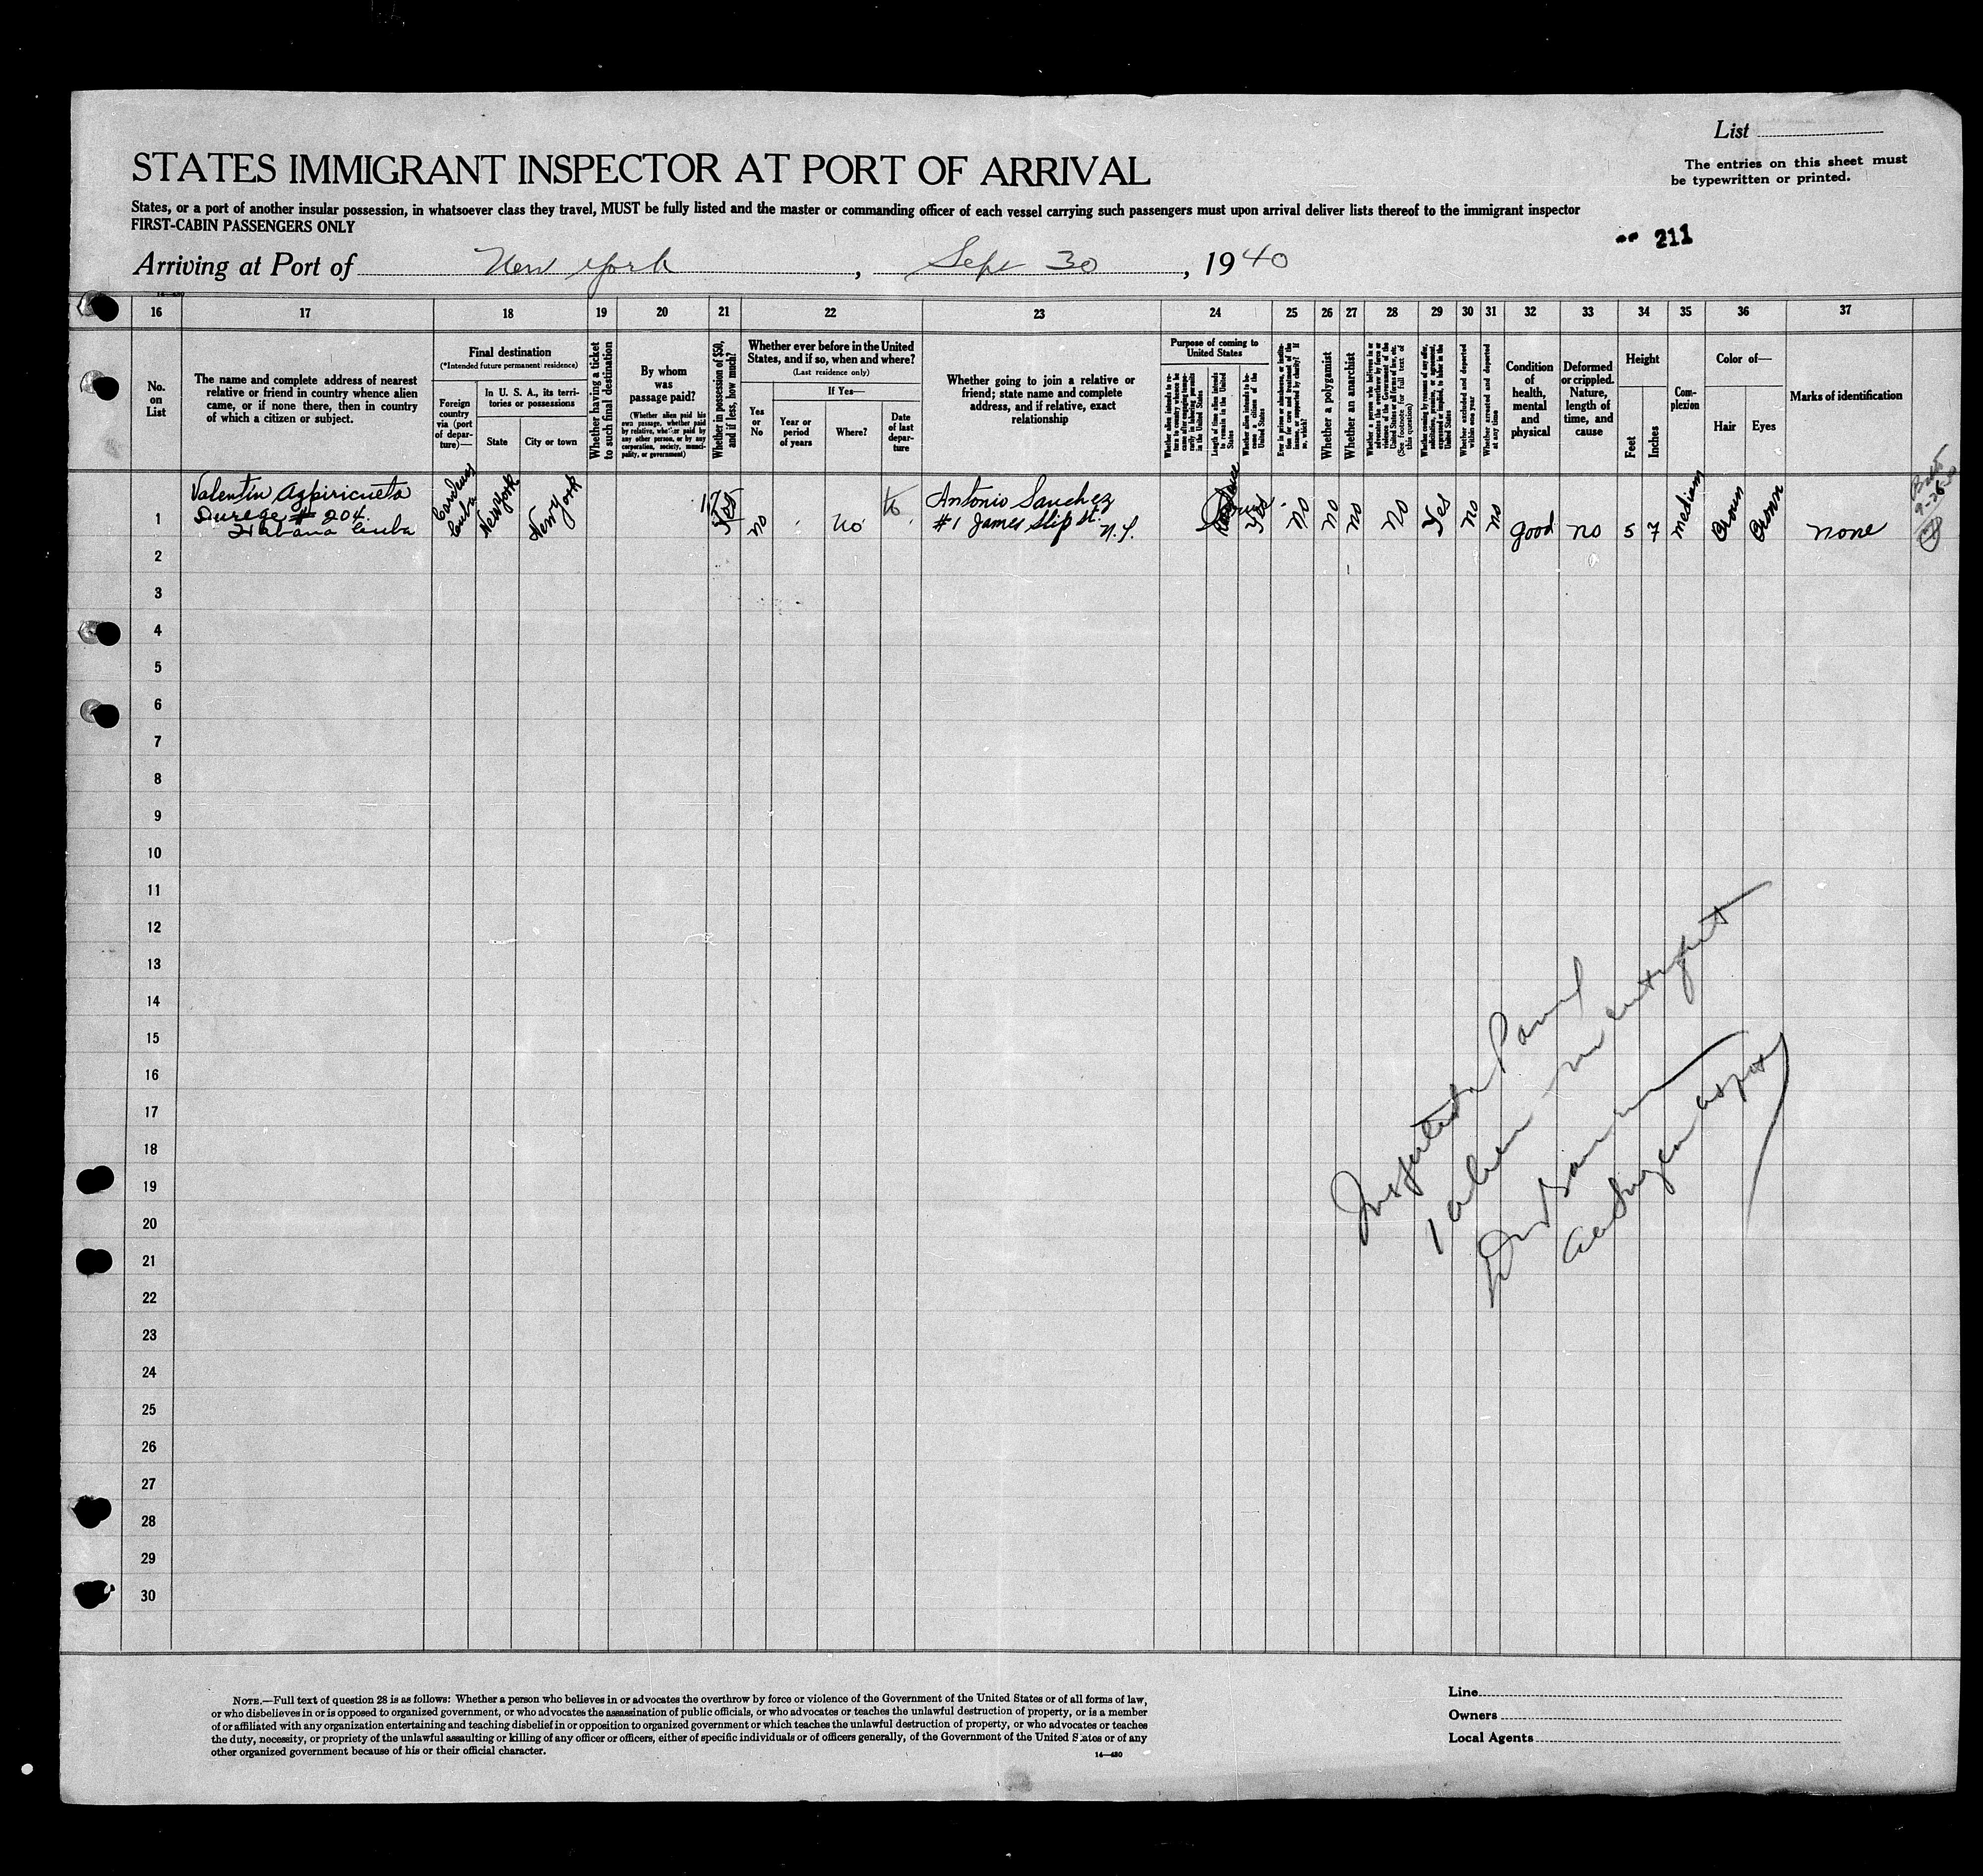 List
STATES IMMIGRANT INSPECTOR AT PORT OF ARRIVAL
The entries on this sheet must
be typewritten or printed.
States, or a port of another insular possession, in whatsoever class they travel, MUST be fully listed and the master or commanding officer of each vessel carrying such passengers must upon arrival deliver lists thereof to the immigrant inspector
FIRST-CABIN PASSENGERS ONLY
211
Arriving at Port of New York, Sept 30, 1940
14—480
16 17 18 19 20 21 22 23 24 25 26 27 28 29 30 31 32 33 34 35 36 37
No. on List
The name and complete address of nearest
relative or friend in country whence alien
came, or if none there, then in country
of which a citizen or subject.
Final destination
(*Intended future permanent residence)
Foreign
country
via (port
of depar-
ture)—
In U. S. A., its terri-
tories or possessions
State
City or town
Whether having a ticket
to such final destination
By whom
was
passage paid?
(Whether alien paid his
own passage, whether paid
by relative, whether paid by
any other person, or by any
corporation, society, munici-
pality, or government)
Whether in possession of $50,
and if less, how much?
Whether ever before in the United
States, and if so, when and where?
(Last residence only)
Yes
or
No
If Yes—
Year or
period
of years
Where?
Date
of last
depar-
ture
Whether going to join a relative or
friend; state name and complete
address, and if relative, exact
relationship
Purpose of coming to
United States
Whether alien intends to re-
turn to country whence he
came after engaging tempo-
rarily in laboring pursuits
in the United States
Length of time alien intends
to remain in the United
States
Whether alien intends to be-
come a citizen of the
United States
Ever in prison or almshouse, or institu-
tion for care and treatment of the
insane, or supported by charity? If
so, which?
Whether a polygamist
Whether an anarchist
Whether a person who believes in or
advocates the overthrow by force or
violence of the Government of the
United States or all forms of law, etc.
(See footnote for full text of
this question)
Whether coming by reasons of any offer,
solicitation, promise, or agreement,
expressed or implied, to labor in the
United States
Whether excluded and deported
within one year
Whether arrested and deported
at any time
Condition
of
health,
mental
and
physical
Deformed
or crippled.
Nature,
length of
time, and
cause
Height
Feet
Inches
Com-
plexion
Color of—
Hair
Eyes
Marks of identification
1
Valentin Azpiricueta
# 204
Habana Cuba
Cardenas
Cuba
New York
New York
Yes
no
no
Antonio Sanchez
#1 James Slip St. N.Y.
Yes
No
no
no
No
Yes
no
no
good
no
5
7
medium
Brown
Brown
none
2
3
4
5
6
7
8
9
10
11
12
13
14
15
16
17
18
19
20
21
22
23
24
25
26
27
28
29
30
NOTE.—Full text of question 28 is as follows: Whether a person who believes in or advocates the overthrow by force or violence of the Government of the United States or of all forms of law,
or who disbelieves in or is opposed to organized government, or who advocates the assassination of public officials, or who advocates or teaches the unlawful destruction of property, or is a member
of or affiliated with any organization entertaining and teaching disbelief in or opposition to organized government or which teaches the unlawful destruction of property, or who advocates or teaches
the duty, necessity, or propriety of the unlawful assaulting or killing of any officer or officers, either of specific individuals or of officers generally, of the Government of the United States or of any
other organized government because of his or their official character.
14—480
Line
Owners
Local Agents